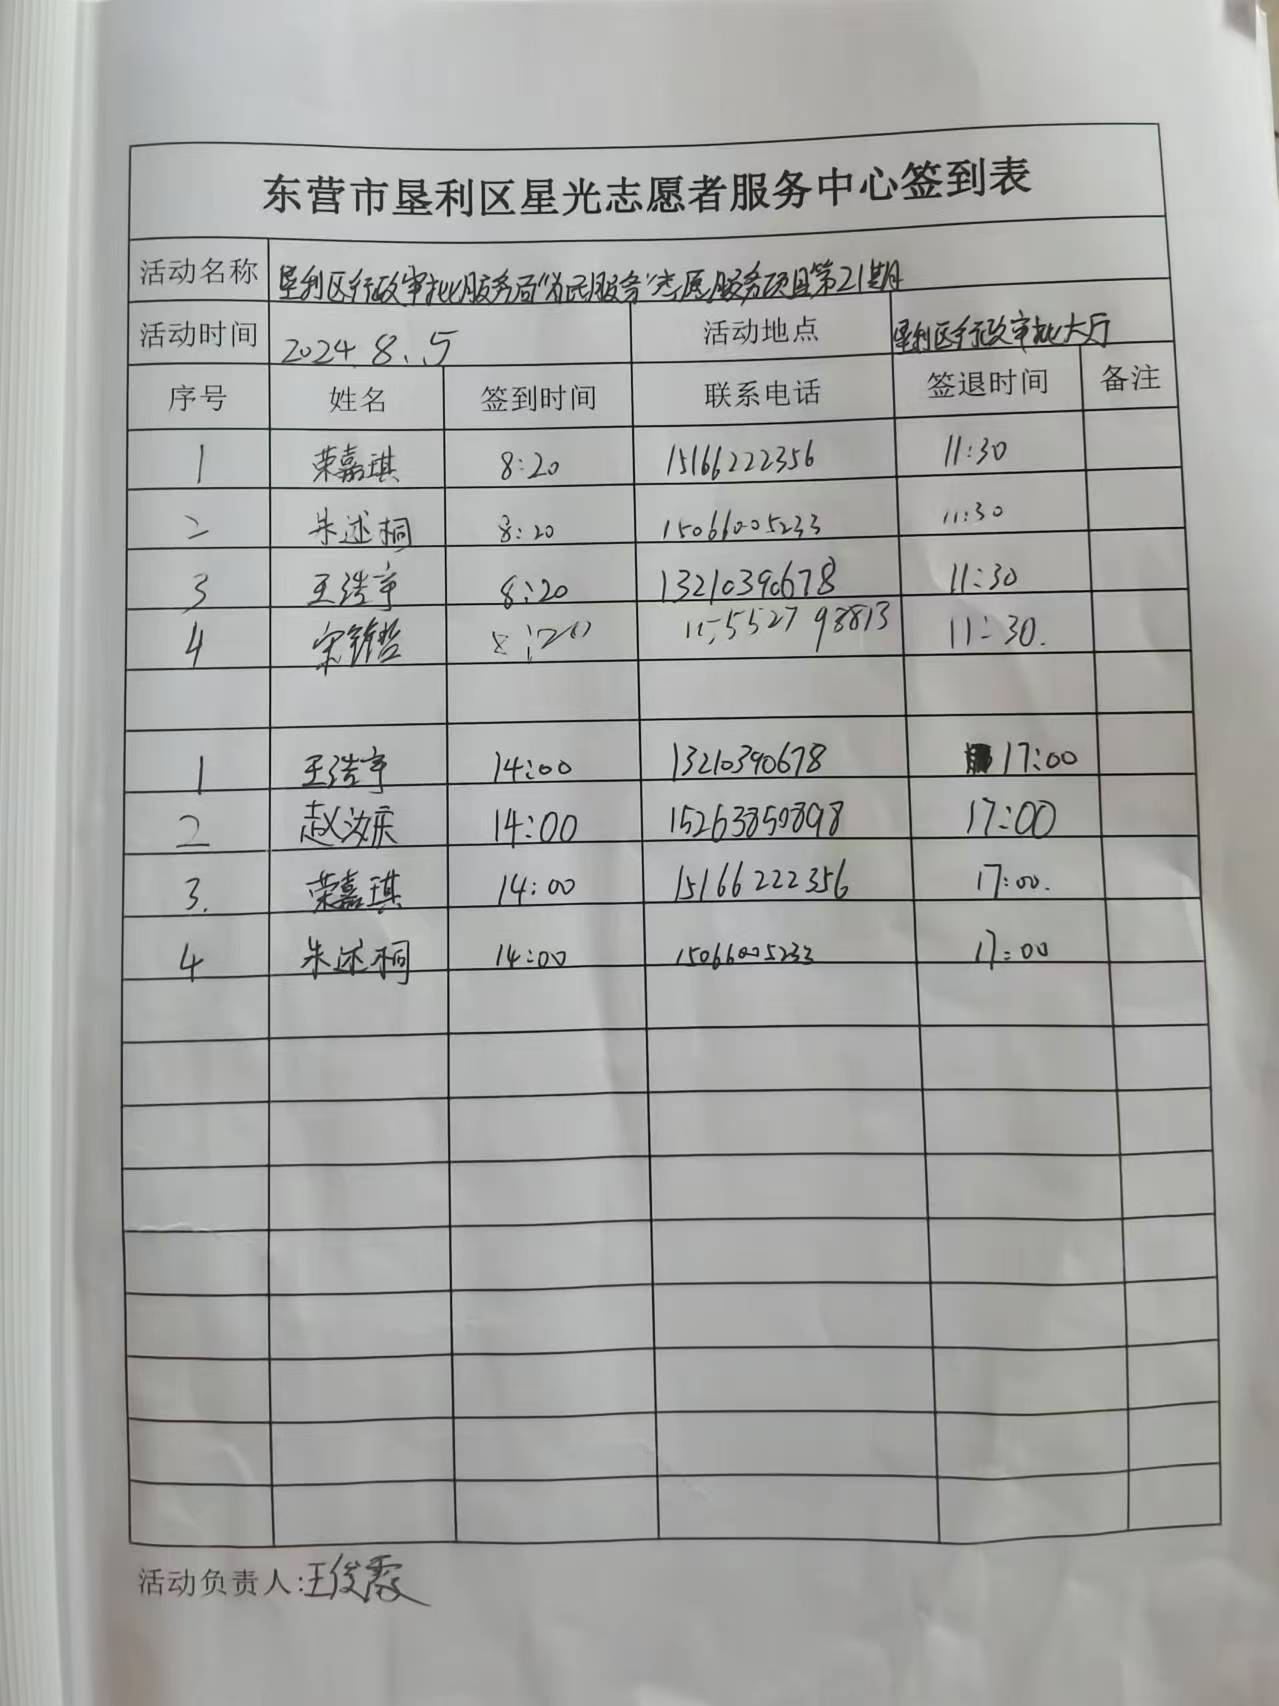 东营市垦利区星光志愿者服务中心签到表
活动名称 垦利区行政审批服务局“为民服务”志愿服务项目第21期
活动时间 2024.8.5 活动地点 垦利区行政审批大厅
序号 姓名 签到时间 联系电话 签退时间 备注
1 荣嘉琪 8:20 15166222356 11:30
2 朱述桐 8:20 15066005233 11:30
3 王浩宇 8:20 13210390678 11:30
4 宋锦哲 8:20 11:30.
1 王浩宇 14:00 13210390678 17:00
2 赵汝庆 14:00 15263850898 17:00
3. 荣嘉琪 14:00 15166222356 17:00.
4 朱述桐 14:00 15066005233 17:00
活动负责人:王俊霞